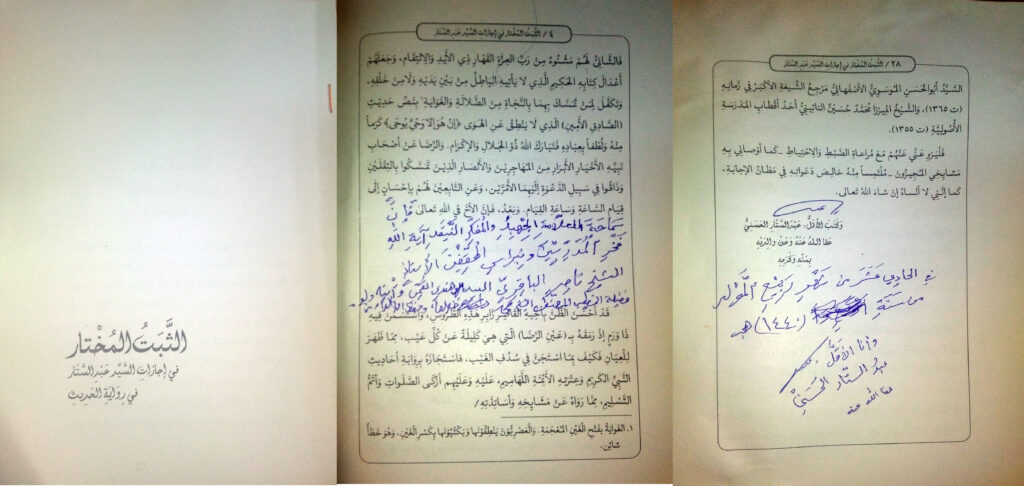 الثَّبَتُ المُخْتَار
في إجازات السَّيِّد عَبْد السَّتَّار
في رواية الحَديث
٤ / الثَّبَتُ المُخْتَار في إجازات السَّيِّد عَبْد السَّتَّار
فَالشَّانِئُ لَهُمْ مَشْنُوءٌ مِنْ رَبِّ العِزَّةِ القَهَّارِ ذِي الأَيْدِ وَالِانْتِقَامِ، وَجَعَلَهُمْ
أَعْدَالَ كِتَابِهِ الحَكِيمِ الَّذِي لَا يَأْتِيهِ البَاطِلُ مِنْ بَيْنِ يَدَيْهِ وَلَا مِنْ خَلْفِهِ،
وَتَكَفَّلَ لِمَنْ تَمَسَّكَ بِهِمَا بِالنَّجَاةِ مِنَ الضَّلَالَةِ وَالغَوَايَةِ١ بِنَصِّ حَدِيثِ
(الصَّادِقِ الأَمِينِ) الَّذِي لَا يَنْطِقُ عَنِ الهَوَى ﴿إِنْ هُوَ إِلَّا وَحْيٌ يُوحَى﴾ كَرَماً
مِنْهُ وَلُطْفاً بِعِبَادِهِ فَتَبَارَكَ اللهُ ذُو الجَلَالِ وَالإِكْرَامِ. وَالرِّضَا عَنْ أَصْحَابِ
نَبِيِّهِ الأَخْيَارِ الأَبْرَارِ مِنَ المُهَاجِرِينَ وَالأَنْصَارِ الَّذِينَ تَمَسَّكُوا بِالثَّقَلَيْنِ
وَذَاقُوا فِي سَبِيلِ الدَّعْوَةِ إِلَيْهِمَا الأَمَرَّيْنِ، وَعَنِ التَّابِعِينَ لَهُمْ بِإِحْسَانٍ إِلَى
قِيَامِ السَّاعَةِ وَسَاعَةِ القِيَامِ. وَبَعْدُ، فَإِنَّ الأَخَ فِي اللهِ تَعَالَى فإنّ
سماحة العلامة الجهبذ والمفكر آية الله
فخر المدرسين ونبراس المحققين الأستاذ
الشيخ ناصر الباقري
قَدْ أَحْسَنَ الظَّنَّ بِأَخِيهِ القَاصِرِ زَابِرِ هَذِهِ الطُّرُوسِ، وَاسْتَسْمَنَ فِيهِ
ذَا وَرَمٍ إِذْ رَمَقَهُ بِـ(عَيْنِ الرِّضَا) الَّتِي هِيَ كَلِيلَةٌ عَنْ كُلِّ عَيْبٍ، مِمَّا ظَهَرَ
لِلْعِيَانِ فَكَيْفَ بِمَا اسْتَجَنَّ فِي سُدَفِ الغَيْبِ، فَاسْتَجَازَهُ بِرِوَايَةِ أَحَادِيثِ
النَّبِيِّ الكَرِيمِ وَعِتْرَتِهِ الأَئِمَّةِ اللَّهَامِيمِ، عَلَيْهِ وَعَلَيْهِم أَزْكَى الصَّلَوَاتِ وَأَتَمُّ
التَّسْلِيمِ، مِمَّا رَوَاهُ عَنْ مَشَايِخِهِ وَأَسَاتِذَتِهِ/
١. الغَوَايَةُ بِفَتْحِ الْغَيْنِ المُعْجَمَةِ. وَالْعَصْرِيُّونَ يَلْفِظُونَهَا وَيَكْتُبُونَهَا بِكَسْرِ الْغَيْنِ. وَهُوَ خَطَأٌ
شَائِن.
٢٨ / الثَّبَتُ المُخْتَار في إجازات السَّيِّد عَبْد السَّتَّار
السَّيِّدُ أَبُو الحَسَنِ المُوسَوِيُّ الأَصْفَهَانِيُّ مَرْجِعُ الشِّيعَةِ الأَكْبَرُ فِي زَمَانِهِ
(ت ١٣٦٥)، وَالشَّيْخُ المِيرْزَا مُحَمَّد حُسَيْن النَّائِينِيُّ أَحَدُ أَقْطَابِ المَدْرَسَةِ
الأُصُولِيَّةِ (ت ١٣٥٥).
فَلْيَرْوِ عَنِّي عَنْهُمْ مَعَ مُرَاعَاةِ الضَّبْطِ وَالِاحْتِيَاطِ ـ كَمَا أَوْصَانِي بِهِ
مَشَايِخِي المُجِيزُونَ ـ مُلْتَمِساً مِنْهُ خَالِصَ دَعَوَاتِهِ فِي مَظَانِّ الإِجَابَةِ،
كَمَا إِنَّنِي لَا أَنْسَاهُ إِنْ شَاءَ اللهُ تَعَالَى.
وَكَتَبَ الأَقَلُّ، عَبْدُ السَّتَّارِ الحَسَنِيُّ
عَفَا اللهُ عَنْهُ وَعَنْ وَالِدَيْهِ
بِمَنِّهِ وَكَرَمِهِ
في الحادي عشر من شهر ربيع المولد
من سنة (١٤٤٠) هـ
وأنا الأقلّ
عبد الستّار الحسنيّ
عفا الله عنه